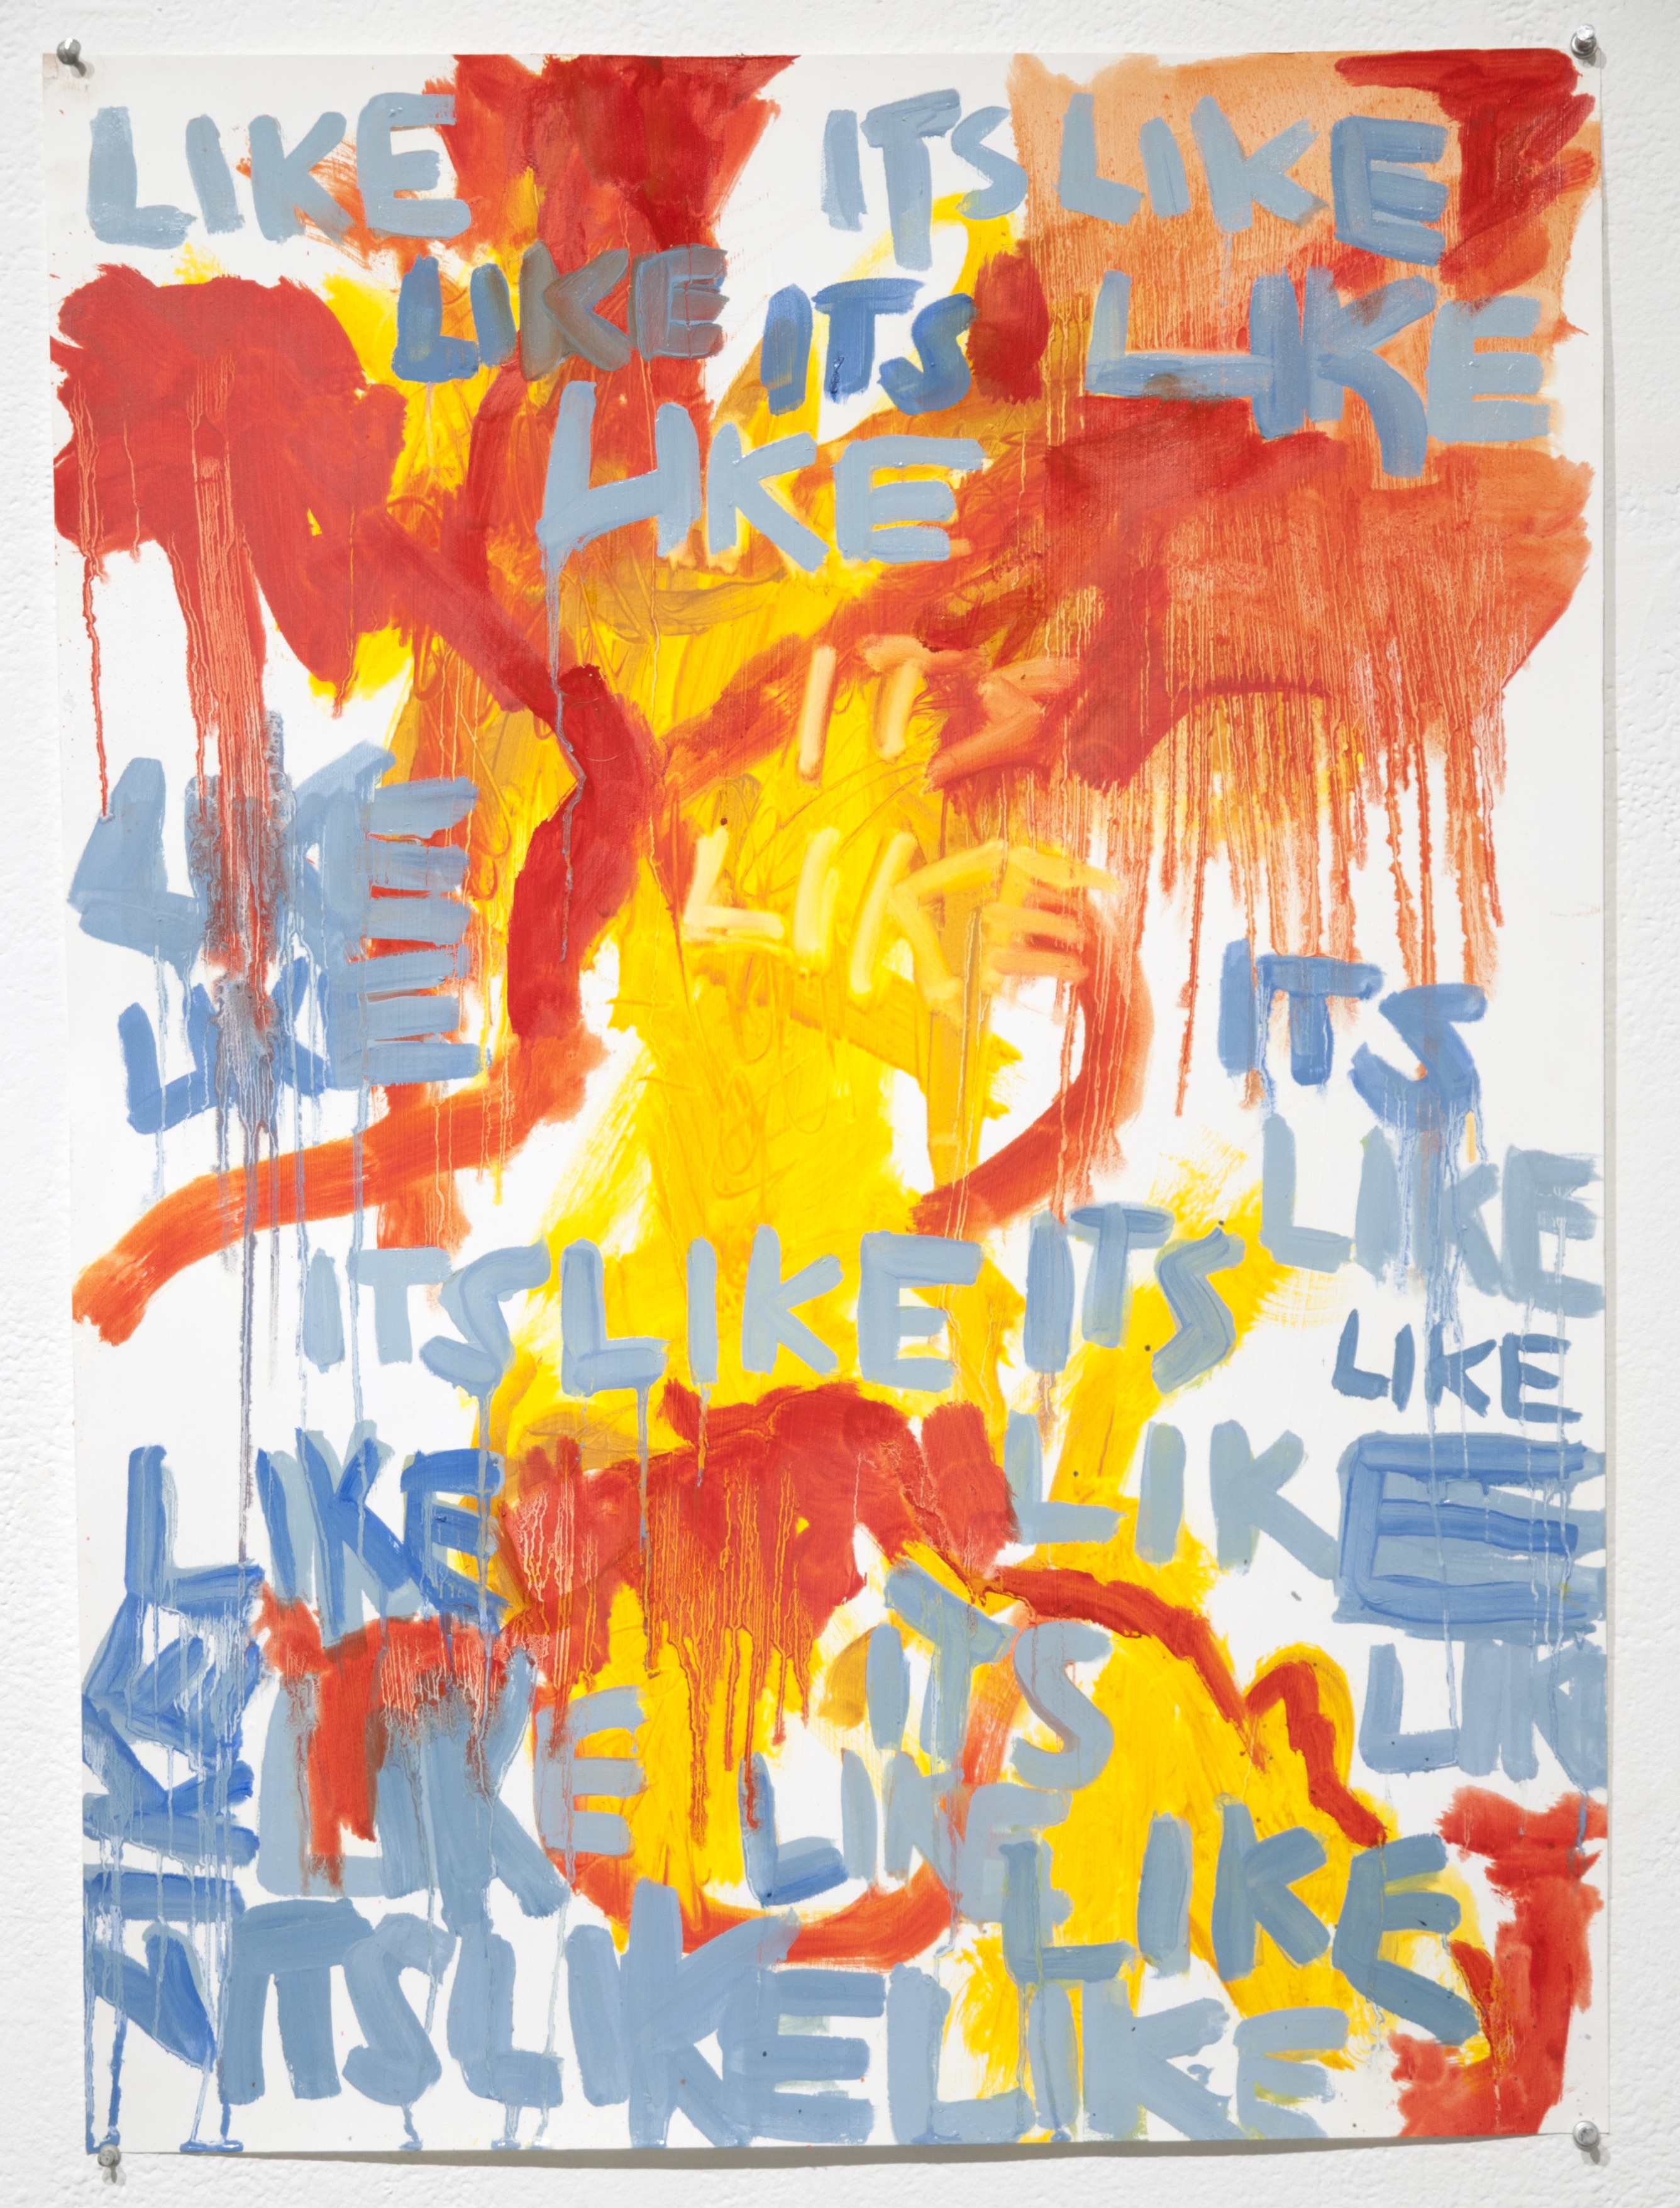 LIKE ITS LIKE
LIKE ITS LIKE
LIKE
ITS
LIKE
LIKE
LIKE ITS
LIKE
ITS LIKE ITS
LIKE
LIKE LIKE
ITS
LIK
LIKE LIKE
LIKE
ITS LIKE LIKE